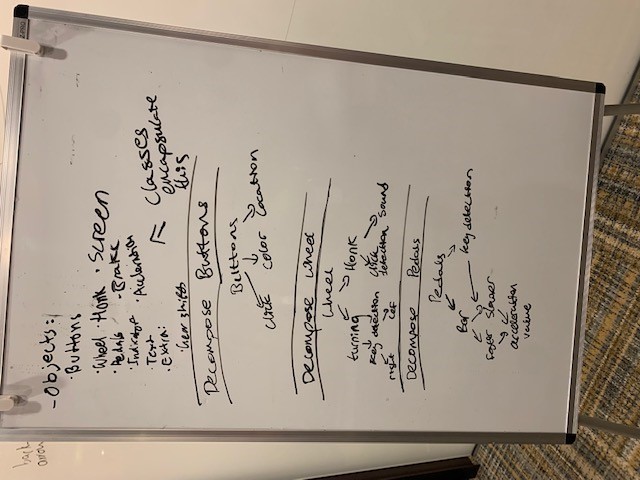 - Objects:
· Buttons
· Wheel · Honk · Screen
· Pedals · Brake
· Text
· Extra:
Gear shifts
classes
encapsulate
this
Decompose Buttons
Buttons
Click color location
Decompose wheel
wheel
turning Honk
key detection click detection sound
right left
Decompose Pedals
Pedals
Bar key detection
color
acceleration
value
back
arrow